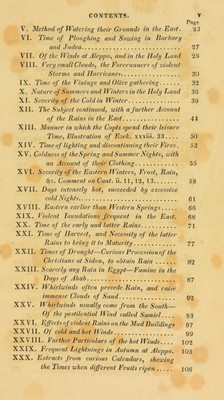 CONTENTS. v
Page
V. Method of Watering their Grounds in the East. 23
VI. Time of Ploughing and Sowing in Barbary
and Judea 27
VII. Of the Winds at Aleppo, and in the Holy Land 28
VIII. Very small Clouds, the Forerunners of violent
Storms and Hurricanes 30
IX. Time of the Vintage and Olive gathering 32
X. Nature of Summers and Winters in the Holy Land 36
XI. Severity of the Cold in Winter 39
XII. The Subject continued, with a farther Account
of the Rains in the East 44
XIII. Manner in which the Copts spend their leisure
Time, Illustration of Ezek. xxxiii. 33. 50
XIV. Time of lighting and discontinuing their Fires. 53
XV. Coldness of the Spring and Summer Nights, with
an Account of their Clothing 55
XVI. Severity of the Eastern Winters, Frost, Rain,
&c. Comment on Cant. ii. 11, 12, 13. 58
XVII. Days intensely hot, succeeded by excessive
cold Nights. 61
XVIII. Eastern earlier than Western Springs 66
XIX. Violent Inundations frequent in the East. 68
XX. Time of the early and latter Rains 71
XXI. Time of Harvest, and Necessity of the latter
Rains to bring it to Maturity 77
XXII. Times of Drought—Curious Procession of the
Christians at Sidon, to obtain Rain 82
XXIII. Scarcely any Rain in Egypt—Famine in the
Days of Ahab 87
XXIV. Whirlwinds often precede Rain, and raise
immense Clouds of Sand 92
XXV. Whirlwinds usually come from the South—
Of the pestilential Wind called Samiel 93
XXVI. Effects of violent Rains on the Mud Buildings 97
XXVII. Of cold and hot Winds 99
XXVIII. Farther Particulars of the hot Winds 102
XXIX. Frequent Lightnings in Autumn at Aleppo. 105
XXX. Extracts from various Calendars, shewing
the Times when different Fruits ripen 106